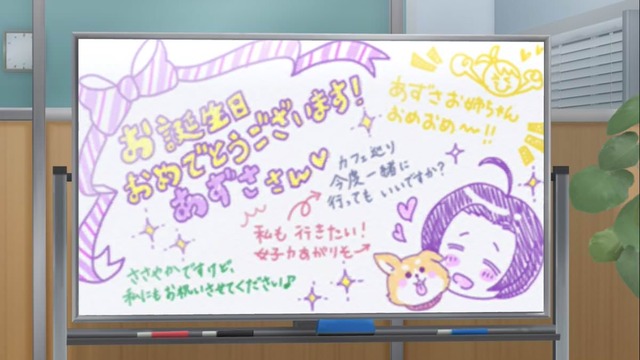 お誕生日
おめでとうございます!
あずささん♡
あずさお姉ちゃん
おめおめ〜!!
カフェ巡り
今度一緒に
行ってもいいですか?
私も行きたい!
女子力あがりそー→
ささやかですけど、
私にもお祝いさせてください♪